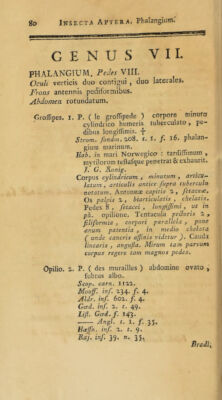 80 INSECTA APTERA. Phalangium.
GENUS VII.
PHALANGIUM, Pedes VIII.
Oculi verticis duo contigui, duo laterales.
Frons antennis pediformibus.
Abdomen rotundatum.
Grossipes. 1. P. (le grossipede) corpore minuto
cylindrico humeris tuberculato, pe-
dibus longissimis. †
Strom. sondm. 208. t. 1. f. 16. phalan-
gium marinum.
Hab. in mari Norwegico: tardissimum,
mytilorum testasque penetrat & exhaurit.
J. G. König.
Corpus cylindricum, minutum, articu-
latum, articulis antice supra tuberculo
notatum. Antennæ capitis 2, setaceæ.
Os palpis 2, biarticulatis, chelatis.
Pedes 8, setacei, longissimi, ut in
pâ. opilione. Tentacula pedalia 2
filiformia, corpori parallela, pone
anum patentia, in medio chelata
(unde cancris affinis videtur). Cauda
linearis, angusta. Mirum tam parvum
corpus regere tam magnos pedes.
Opilio. 2. P. (des murailles) abdomine ovato,
subtus albo.
Scop. carn. 1122.
Mouff. inf. 234. f. 4.
Aldr. inf. 602. f. 4.
Gœd. inf. 2. t. 49.
List. Gœd. f. 143.
—— Angl. t. 1. f. 35.
Hoffn. inf. 2. t. 9.
Raj. inf. 39. n. 35.
Bradl,